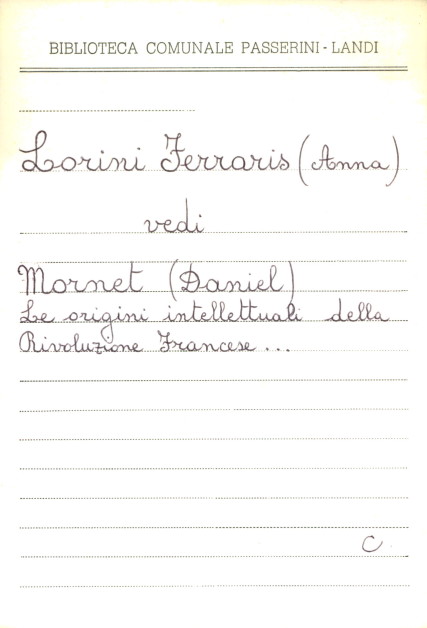 BIBLIOTECA COMUNALE PASSERINI - LANDI
Lorini Ferraris (Anna)
vedi
Mornet (Daniel)
Le origini intellettuali della
Rivoluzione Francese ...
C